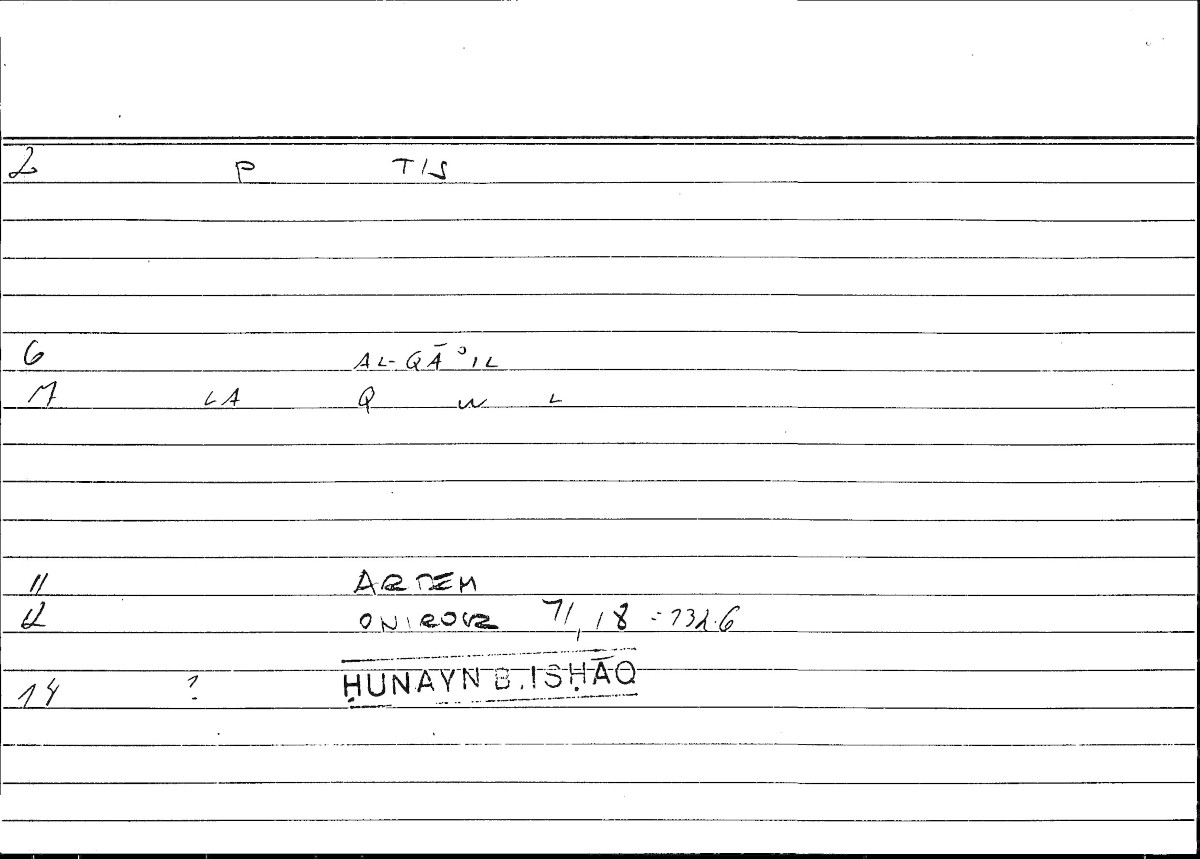 2 P TIS
6 AL-QĀʾIL
7 LA Q W L
11 ARTEM
12 ONIROCR 71,18 = 132.6
14 ? ḤUNAYN B. ISḤĀQ